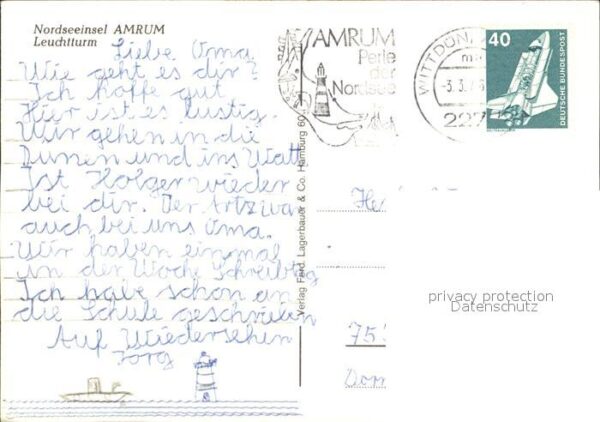 Nordseeinsel AMRUM
Leuchtturm
Liebe Oma
Wie geht es dir?
Ich hoffe gut
Hier ist es lustig.
Wir gehen in die
Dünen und ins Watt
Ist Holger wieder
bei dir. Der Artz war
auch bei uns Oma.
Wir haben einmal
in der Woche Schreibtag
Ich habe schon an
die Schule geschrieben
Auf Wiedersehen
Jörg
Verlag Ferd. Lagerbauer & Co. Hamburg 60
AMRUM
Perle
der
Nordsee
WITTDÜN,
-3.5.7
227
40
DEUTSCHE BUNDESPOST
He
75
Dor
privacy protection
Datenschutz